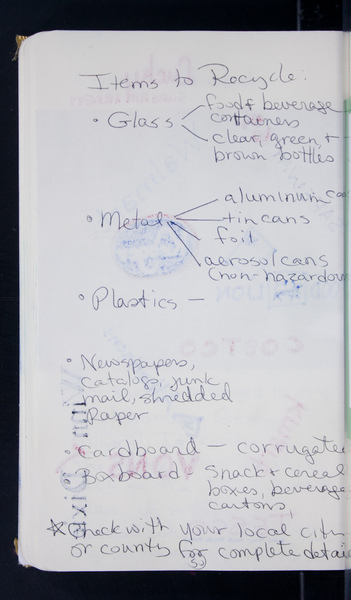 Items to Recycle:
• Glass
food & beverage
containers
clear, green, +
brown bottles
• Metal
aluminum
tin cans
foil
aerosol cans
(non-hazardous
• Plastics —
• Newspapers,
catalogs, junk
mail, shredded
Paper
Cardboard — corrugate
Boxboard
Snack + cereal
boxes, beverage
cartons,
☆ Check with your local city
or county for complete detai